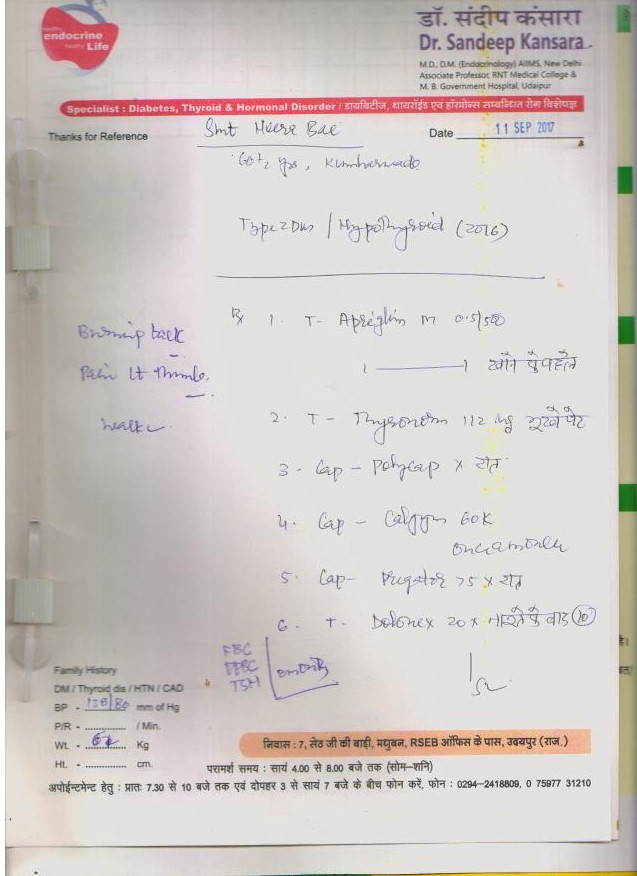 healthy
endocrine
healthy Life
डॉ. संदीप कंसारा
Dr. Sandeep Kansara
M.D., D.M. (Endocrinology) AIIMS, New Delhi
Associate Professor, RNT Medical College &
M. B. Government Hospital, Udaipur
Specialist : Diabetes, Thyroid & Hormonal Disorder / डायबिटीज, थायरॉईड एवं हॉर्मोन्स सम्बन्धित रोग विशेषज्ञ
Thanks for Reference
Smt Meera Bai
Date 11 SEP 2017
yrs, Kumharwada
Type 2 Dm / Hypothyroid (2016)
Burning back
Pain Lt thumb
Rx 1. T- Apriglim M 0.5/500
1 — 1 खाने के पहले
2. T - Thyronorm 112 mg भूखे पेट
3. Cap - Polycap x रात
4. Cap - 60K
once a month
5. Cap- 75 x रात
6. T. Dolonex 20 x नाश्ते के बाद (10)
FBC
PPBC
TSH
Family History
DM / Thyroid dis / HTN / CAD
BP - 136/80 mm of Hg
P/R - ............ / Min.
Wt. - Kg
Ht. - ............ cm.
निवास : 7, सेठ जी की बाड़ी, मधुबन, RSEB ऑफिस के पास, उदयपुर (राज.)
परामर्श समय : सायं 4.00 से 8.00 बजे तक (सोम-शनि)
अपोईन्टमेन्ट हेतु : प्रातः 7.30 से 10 बजे तक एवं दोपहर 3 से सायं 7 बजे के बीच फोन करें, फोन : 0294-2418809, 0 75977 31210